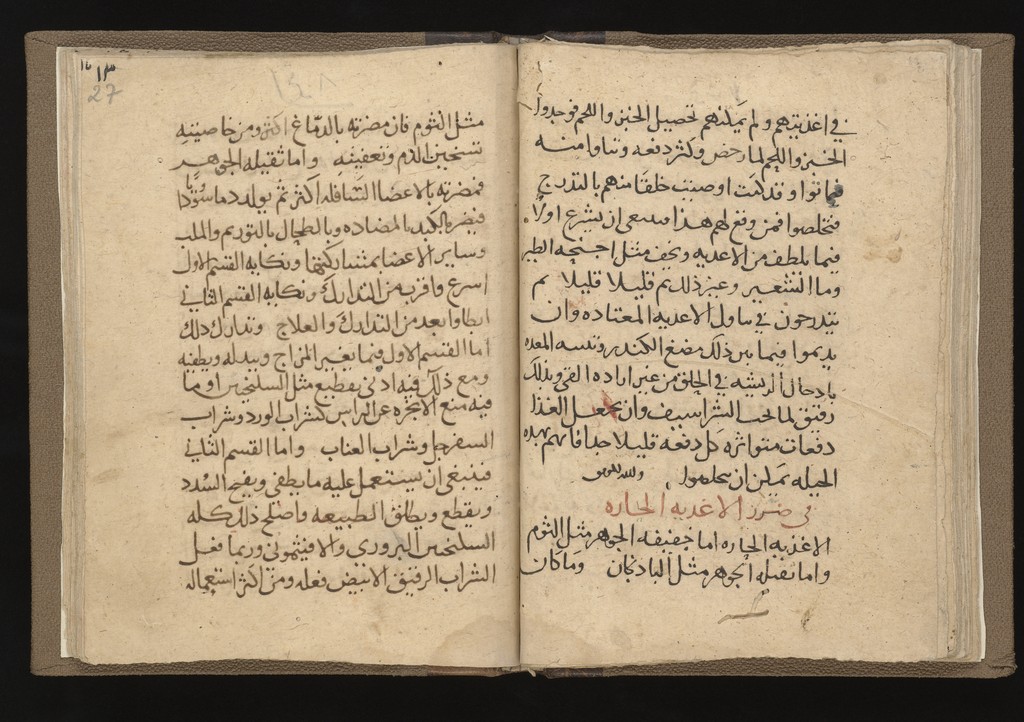 في اغذيتهم ولم يمكنهم تحصيل الخبز واللحم فوجدوا
الخبز واللحم لما رخص وكثر دفعه وتناولوا منه
فماتوا وقد كنت اوصيت خلقا منهم بالتدرج
فتخلصوا فمن وقع لهم هذا ان يشرع اولا
فيما يلطف من الاغديه ويخف مثل اجنحه الطير
وما الشعير وغير ذلك ثم قليلا قليلا ثم
يتدرجون في تناول الاغديه المعتاده وان
يديموا فيما بين ذلك مضغ الكندر المعده
بادخال الريشه في الحلق من غير اراده القي وبدلك
رقيق لما تحت الشراسيف وان يجعل الغذا
دفعات متواتره كل دفعه قليلا جدا فانهم بهده
الحيله يمكن ان يخلصوا
في ضرر الاغديه الحاره
الاغذيه الحاره اما خفيفه الجوهر مثل الثوم
واما ثقيله الجوهر مثل البادنجان وما كان
١٣
27
مثل الثوم فان مضرته بالدماغ اكثر ومن خاصيته
تسخين الدم وتعفينه واما ثقيله الجوهر
فمضرته بالاعضا السافله اكثر ثم يولد دما سودا
فيضر بالكبد بالمضاده وبالطحال بالتوريم
وساير الاعضا بمشاركتها ونكايه القسم الاول
اسرع واقرب من التدارك ونكايه القسم الثاني
ابطا وابعد من التدارك والعلاج وتدارك ذلك
اما القسم الاول فبما يغير المزاج ويبدله ويطفيه
ومع ذلك فيه ادنى تقطيع مثل السكنجبين او ما
فيه منع الابخره عن الراس كشراب الورد وشراب
السفرجل وشراب العناب واما القسم الثاني
فينبغي ان يستعمل عليه ما يطفي ويفتح السدد
ويقطع ويطلق الطبيعه واصلح ذلك كله
السكنجبين البزوري والافيتموني وربما فعل
الشراب الرقيق الابيض فعله ومن اكثر استعماله